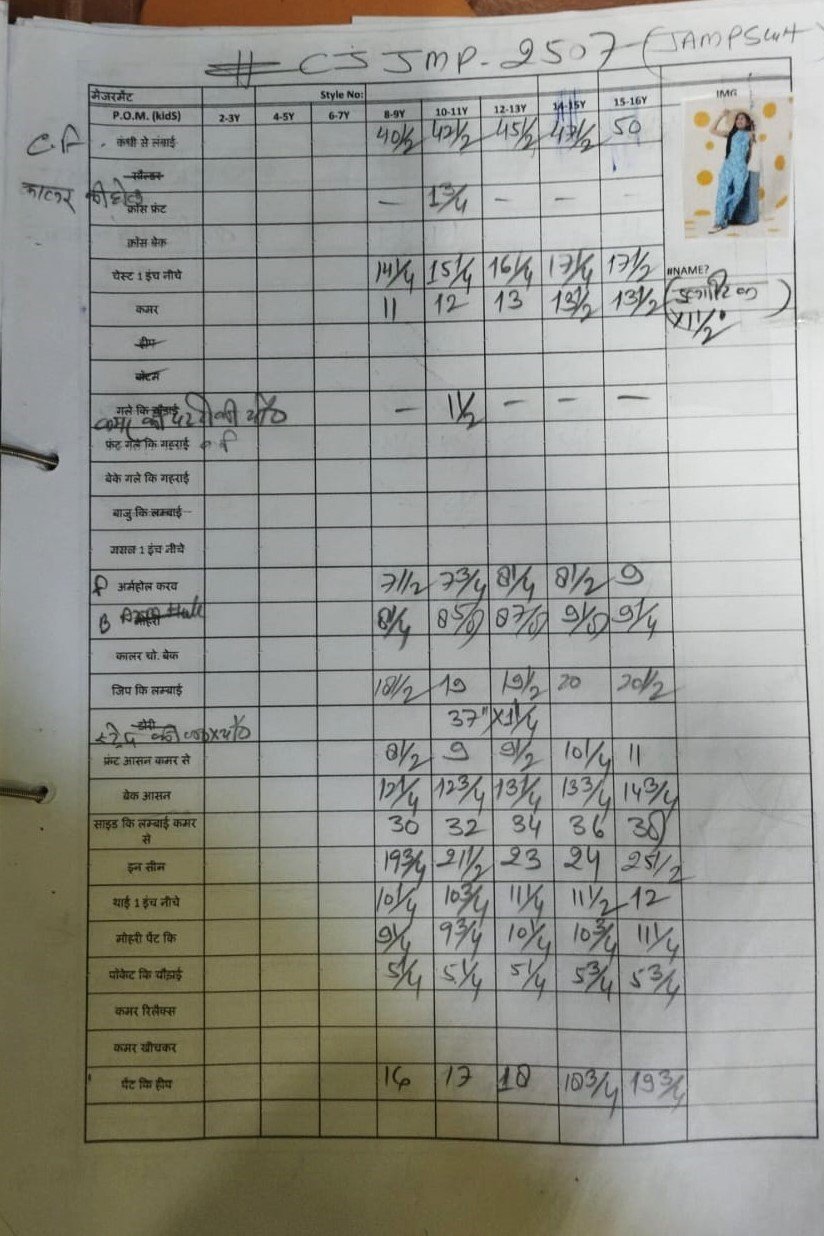 # CJ JMP-2507 (JAMPSuit)
मेजरमेंट Style No: IMG
P.O.M. (kidS) 2-3Y 4-5Y 6-7Y 8-9Y 10-11Y 12-13Y 14-15Y 15-16Y
C.F. कंधी से लंबाई 40 1/2 42 1/2 45 1/2 47 1/2 50
सोल्डर
कालर की
क्रॉस फ्रंट — 1 3/4 — — —
क्रॉस बेक
चेस्ट 1 इंच नीचे 14 1/4 15 1/4 16 1/4 17 1/4 17 1/2 #NAME?
कमर 11 12 13 13 1/2 13 1/2 (इलास्टिक)
x 11 1/2"
हीप
बॉटम
गले कि चौड़ाई — 1 1/2 — — —
कमर की पट्टी की चौ०
फ्रंट गले कि गहराई
बेक गले कि गहराई
बाजु कि लम्बाई
मसल 1 इंच नीचे
F अर्महोल करव 7 1/2 7 3/4 8 1/4 8 1/2 9
B Arm Hole मोहरी 8 1/4 8 5/8 8 7/8 9 1/8 9 1/4
कालर चो. बेक
जिप कि लम्बाई 18 1/2 19 19 1/2 20 20 1/2
डोरी 37" x 1 1/4
फ्रंट आसन कमर से 8 1/2 9 9 1/2 10 1/4 11
बेक आसन 12 1/4 12 3/4 13 1/4 13 3/4 14 3/4
साइड कि लम्बाई कमर से 30 32 34 36 38
इन सीन 19 3/4 21 1/2 23 24 25 1/2
थाई 1 इंच नीचे 10 1/4 10 3/4 11 1/4 11 1/2 12
मोहरी पेंट कि 9 1/4 9 3/4 10 1/4 10 3/4 11 1/4
पोकेट कि चौड़ाई 5 1/4 5 1/4 5 1/4 5 3/4 5 3/4
कमर रिलैक्स
कमर खीचकर
पेंट कि हीप 16 17 18 18 3/4 19 3/4